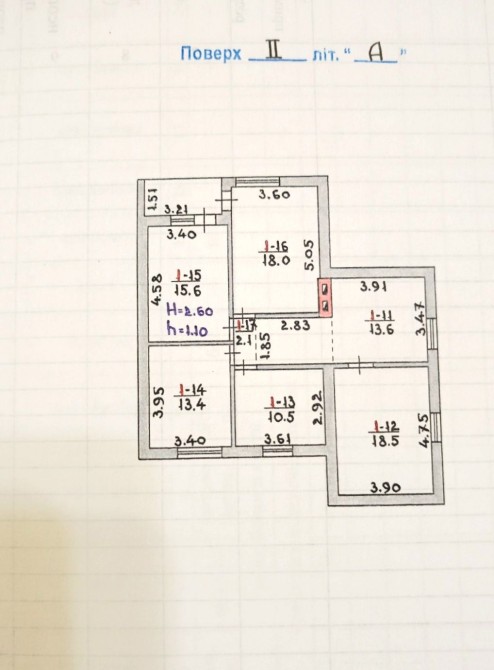 Поверх II літ. "А"
1.51
3.21
3.60
3.40
1-16
18.0
5.05
4.58
1-15
15.6
H=2.60
h=1.10
3.91
1-11
13.6
3.47
1-17
2.1
1.85
2.83
3.95
1-14
13.4
3.40
1-13
10.5
2.92
3.61
1-12
18.5
4.75
3.90